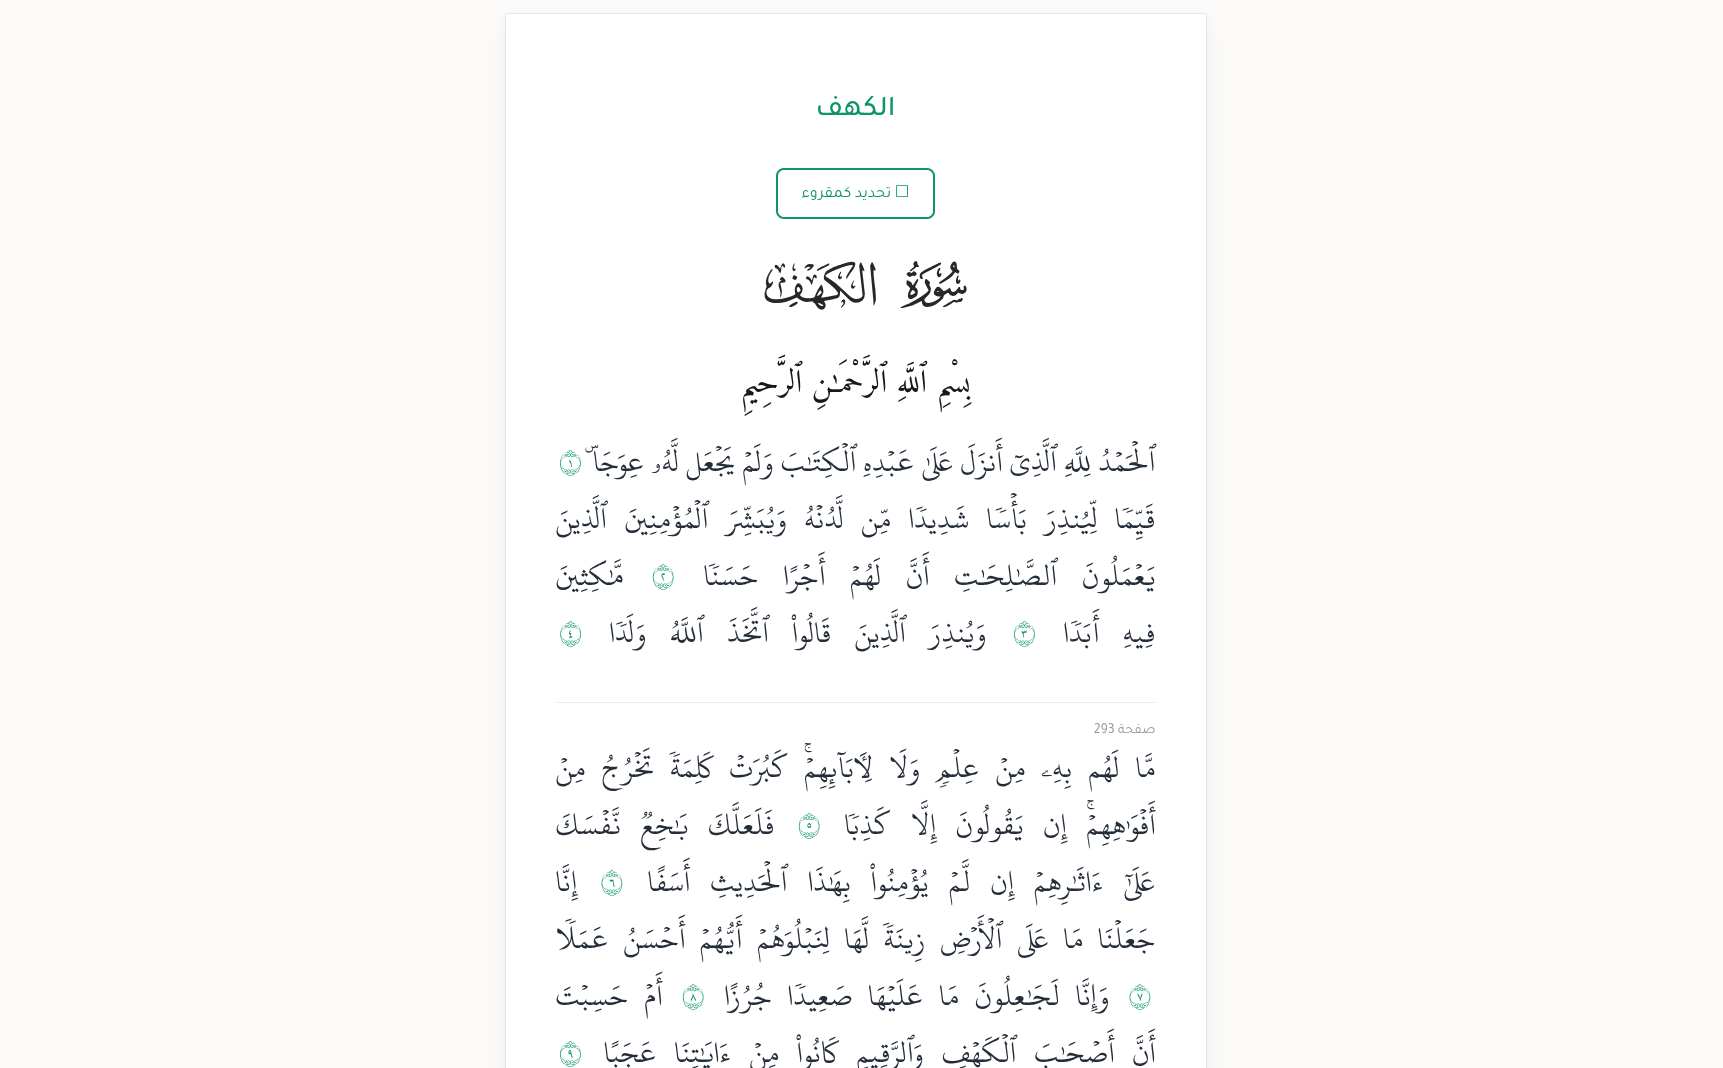 الكهف
☐ تحديد كمقروء
سُورَةُ الكَهْفِ
بِسْمِ ٱللَّهِ ٱلرَّحْمَـٰنِ ٱلرَّحِيمِ
ٱلْحَمْدُ لِلَّهِ ٱلَّذِىٓ أَنزَلَ عَلَىٰ عَبْدِهِ ٱلْكِتَـٰبَ وَلَمْ يَجْعَل لَّهُۥ عِوَجَاۜ ١
قَيِّمًا لِّيُنذِرَ بَأْسًا شَدِيدًا مِّن لَّدُنْهُ وَيُبَشِّرَ ٱلْمُؤْمِنِينَ ٱلَّذِينَ
يَعْمَلُونَ ٱلصَّـٰلِحَـٰتِ أَنَّ لَهُمْ أَجْرًا حَسَنًا ٢ مَّـٰكِثِينَ
فِيهِ أَبَدًا ٣ وَيُنذِرَ ٱلَّذِينَ قَالُوا۟ ٱتَّخَذَ ٱللَّهُ وَلَدًا ٤
صفحة 293
مَّا لَهُم بِهِۦ مِنْ عِلْمٍ وَلَا لِـَٔابَآئِهِمْ ۚ كَبُرَتْ كَلِمَةً تَخْرُجُ مِنْ
أَفْوَٰهِهِمْ ۚ إِن يَقُولُونَ إِلَّا كَذِبًا ٥ فَلَعَلَّكَ بَـٰخِعٌ نَّفْسَكَ
عَلَىٰٓ ءَاثَـٰرِهِمْ إِن لَّمْ يُؤْمِنُوا۟ بِهَـٰذَا ٱلْحَدِيثِ أَسَفًا ٦ إِنَّا
جَعَلْنَا مَا عَلَى ٱلْأَرْضِ زِينَةً لَّهَا لِنَبْلُوَهُمْ أَيُّهُمْ أَحْسَنُ عَمَلًا
٧ وَإِنَّا لَجَـٰعِلُونَ مَا عَلَيْهَا صَعِيدًا جُرُزًا ٨ أَمْ حَسِبْتَ
أَنَّ أَصْحَـٰبَ ٱلْكَهْفِ وَٱلرَّقِيمِ كَانُوا۟ مِنْ ءَايَـٰتِنَا عَجَبًا ٩